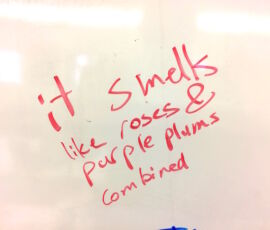 it smells
like roses &
purple plums
combined